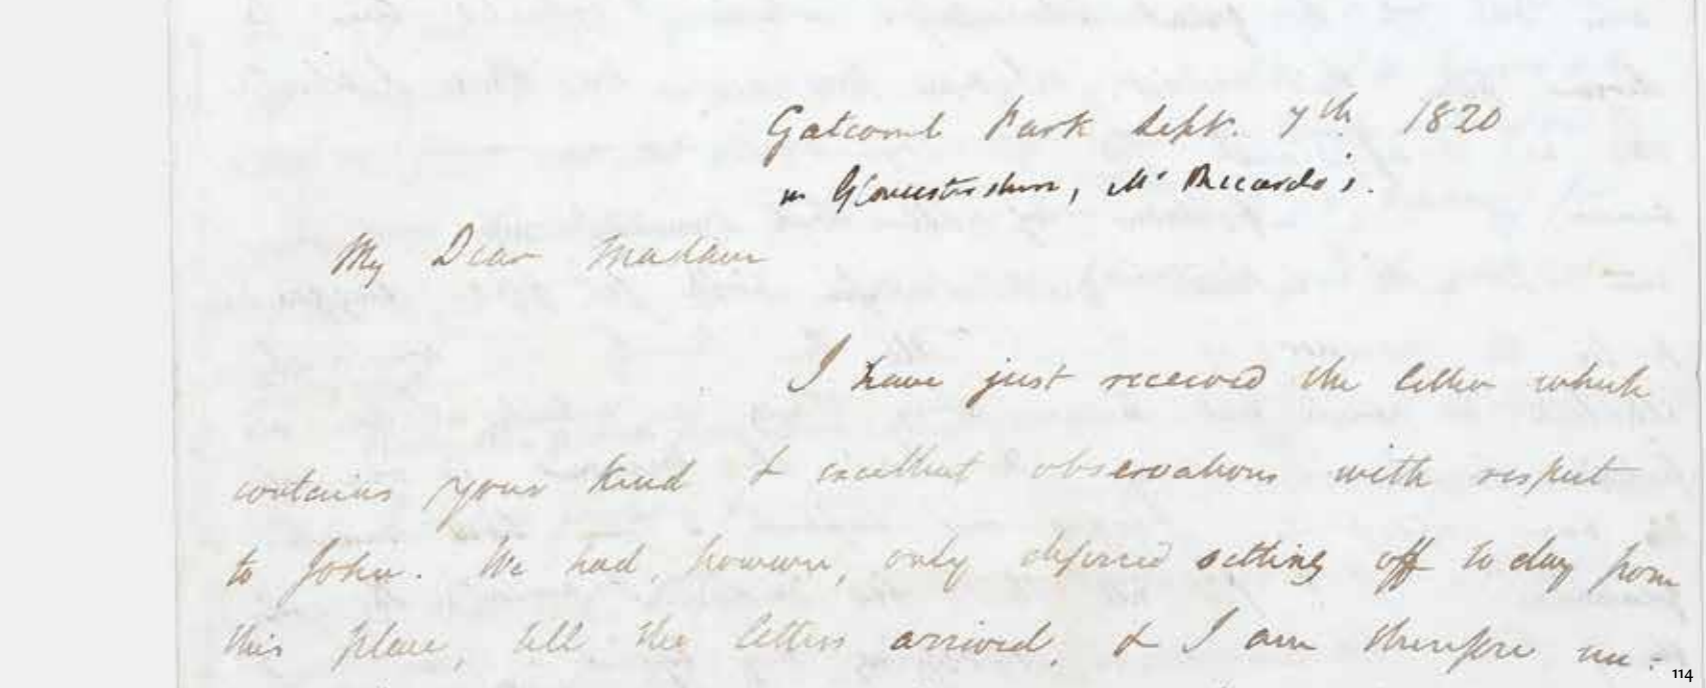 Gatcomb Park Sept. 7th 1820
in Gloucestershire, Mr Riccardo's.
My Dear Madam
I have just received the letter which
contains your kind & excellent observations with respect
to John. We had, however, only deferred setting off to day from
this place, till the letters arrived, & I am therefore un:
114